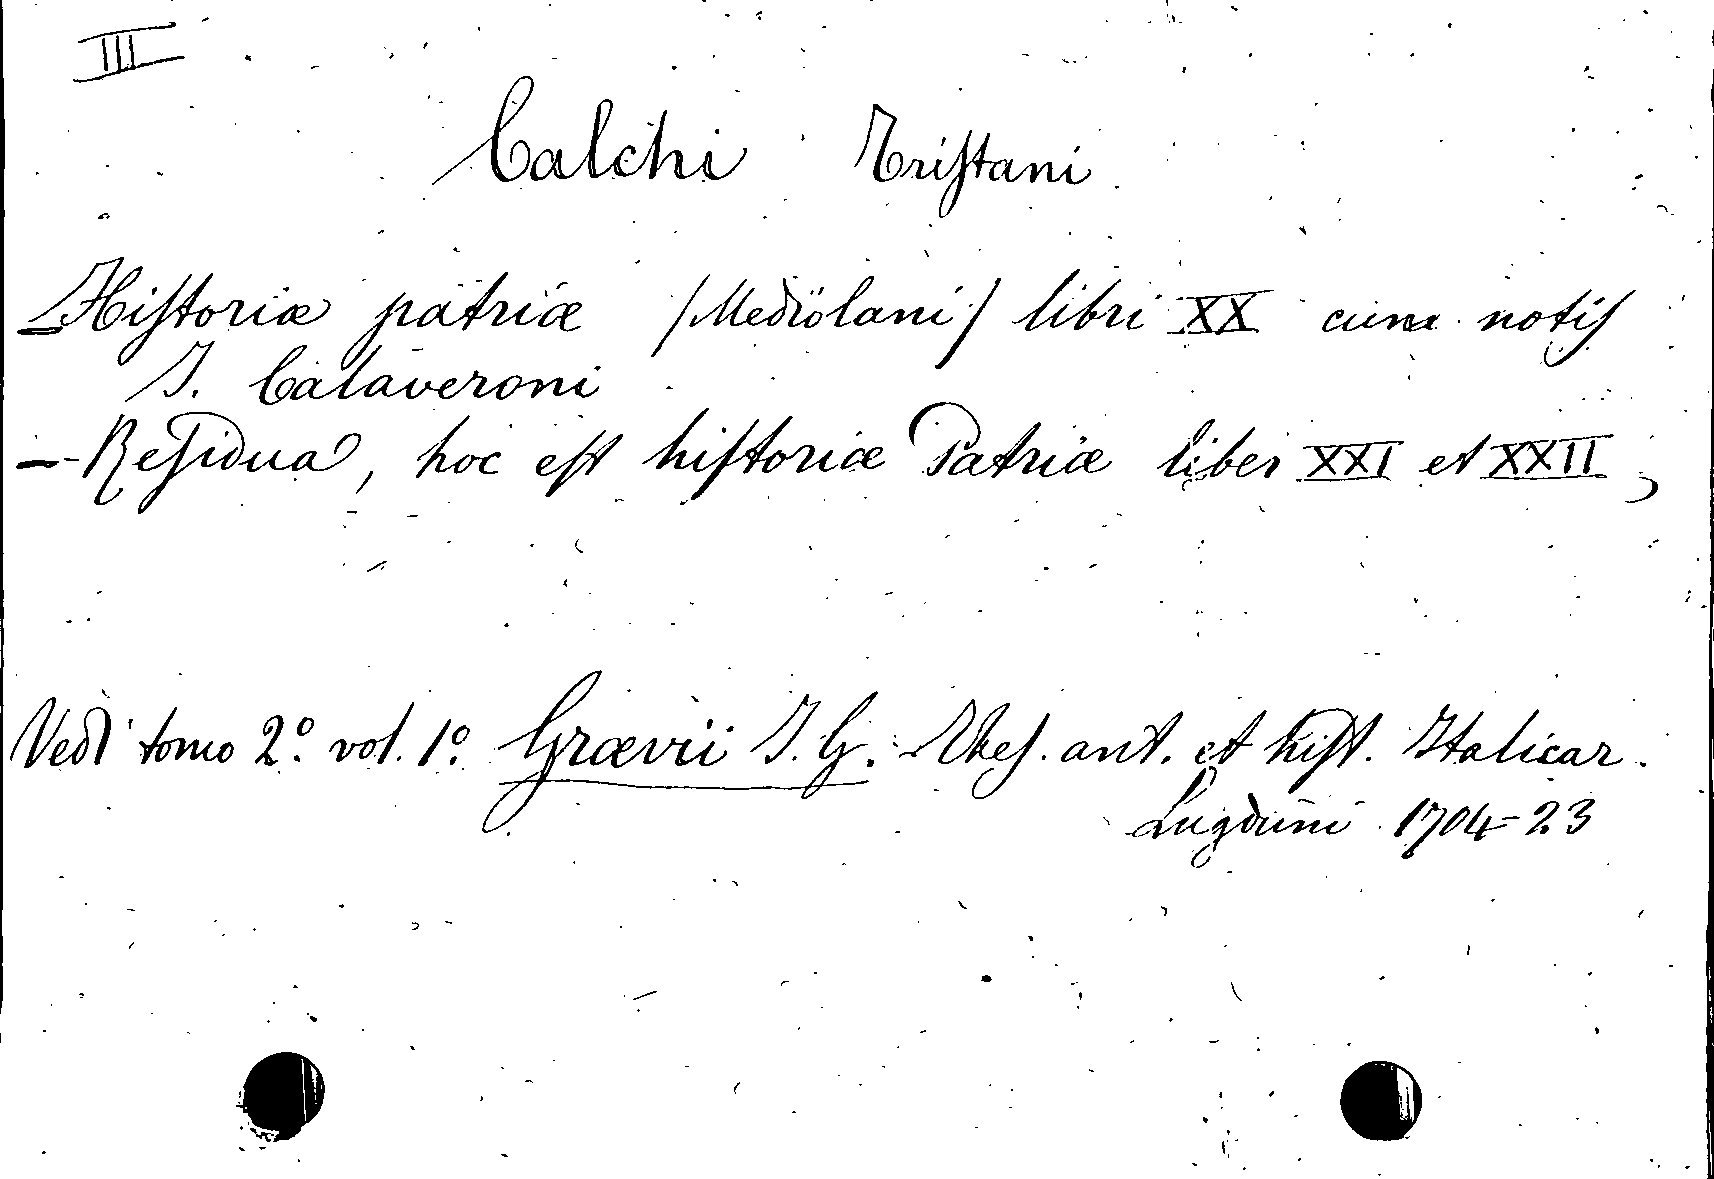 III
Calchi Tristani
- Historiæ patriæ /Mediolani/ libri XX cum notis
J. Calaveroni
- Residua, hoc est historiæ Patriæ liber XXI et XXII,
Vedi tomo 2º. vol. 1º Grævii J. G. Thes. ant. et hist. Italicar.
Lugduni 1704-23